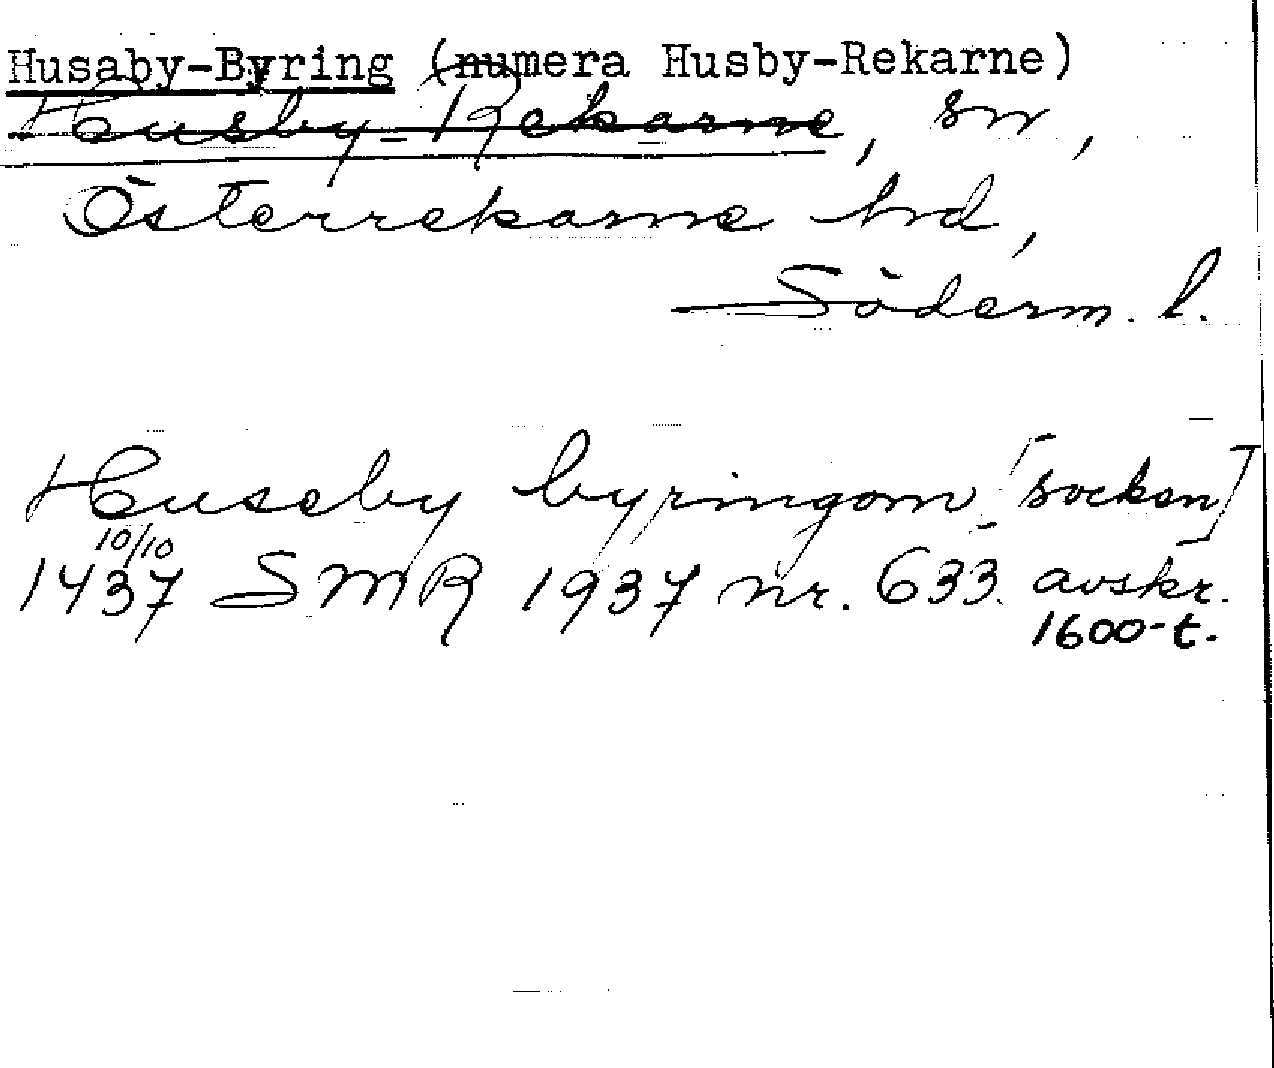 Husaby-Byring (numera Husby-Rekarne)
Husby-Rekarne, sn,
Österrekarne hrd,
Söderm. l.
Huseby byringom [socken]
10/10
1437 SMR 1937 nr. 633. avskr.
1600-t.